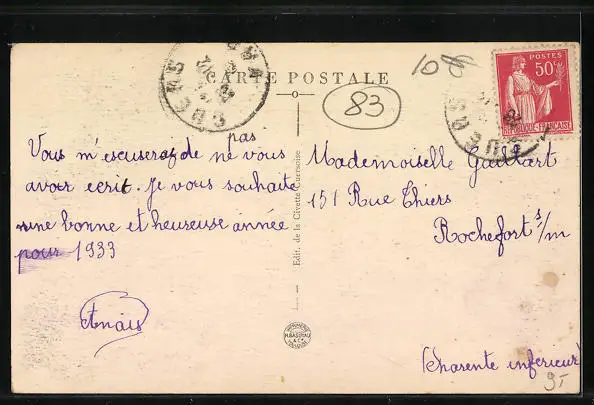 CARTE POSTALE
108
83
POSTES
50c
REPUBLIQUE FRANÇAISE
CUERS
pas
Vous m'escuserazde ne vous
avoir ecrit. Je vous souhaite
une bonne et heureuse année
pour 1933
Anais
Edit. de la Civette Cuersoise
Mademoiselle Gaillart
151 Rue Thiers
Rochefort s/m
(Charente inferieur)